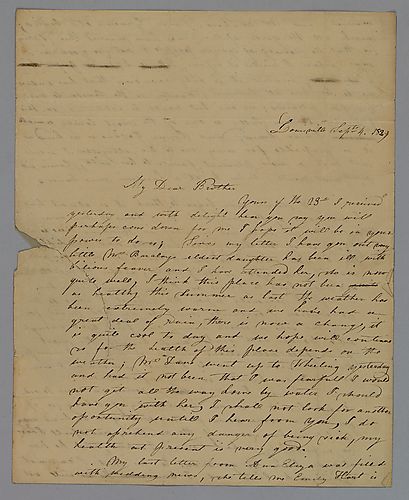 Louisville Sept. 4. 1829
My Dear Brother
Yours of the 23rd I received
yesterday and with delight hear you say you will
perhaps come down for me I hope it will be in your
power to do so, Since my letter I have you
little Mrs eldest daughter has been ill with
bilious feaver and I have attended her, she is now
quite well, I think this place has not been
as healthy this summer as last the weather has
been extremely warm and we have had a
great deal of rain, there is now a change, it
is quite cool to day and we hope will continue
so for the health of this place depends on the
weather, Mrs went up to Wheeling yesterday
and had it not been that I was fearfull I would
not get all the way down by water I should
have with her, I shall not look for another
opportunity untill I hear from you, I do
not aprehend any danger of being sick, my
health at present is very good.
My last letter from Ann Eliza was filled
with wedding news, she tells me Emily is